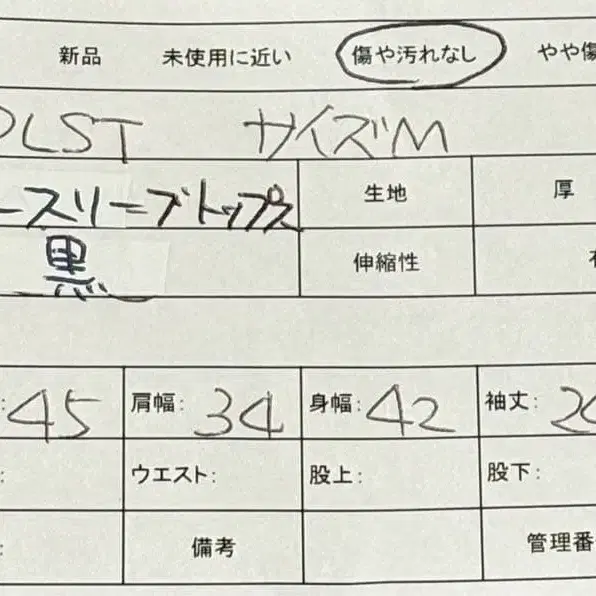 新品 未使用に近い 傷や汚れなし やや傷
PLST サイズM
ースリーブトップス 生地 厚
黒 伸縮性
: 45 肩幅: 34 身幅: 42 袖丈: 2
: ウエスト: 股上: 股下:
: 備考 管理番